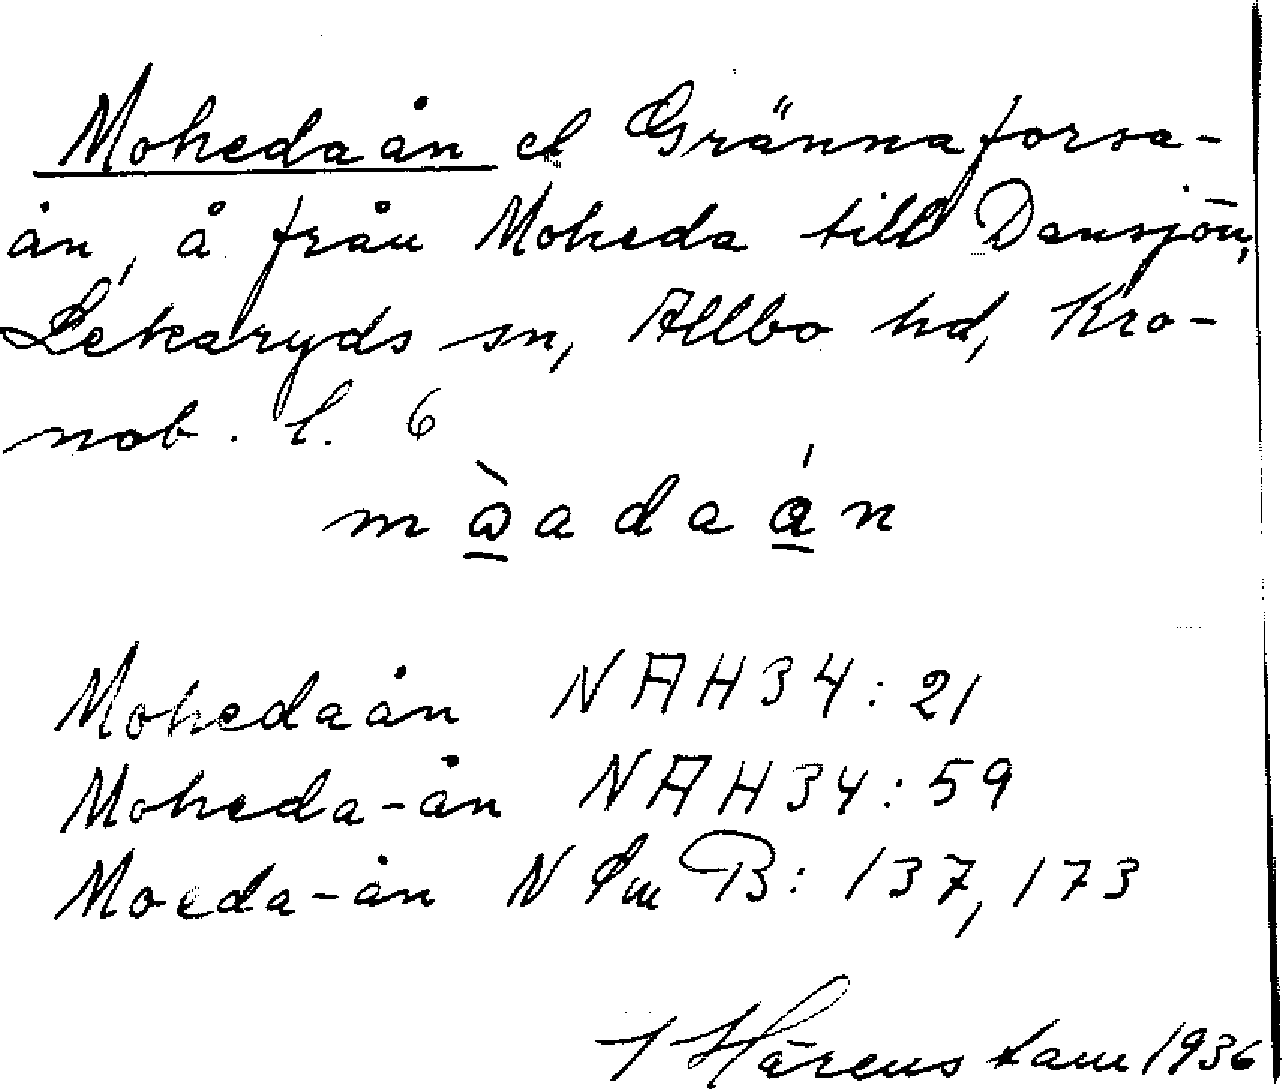 Mohedaån el Grännaforsa-
ån, å från Moheda till Dansjön,
Lekaryds sn, Allbo hd, Kro-
nob. l. 6
mòadaán
Mohedaån NAH34:21
Moheda-ån NAH34:59
Moeda-ån N Sm B: 137, 173
Härenstam 1936